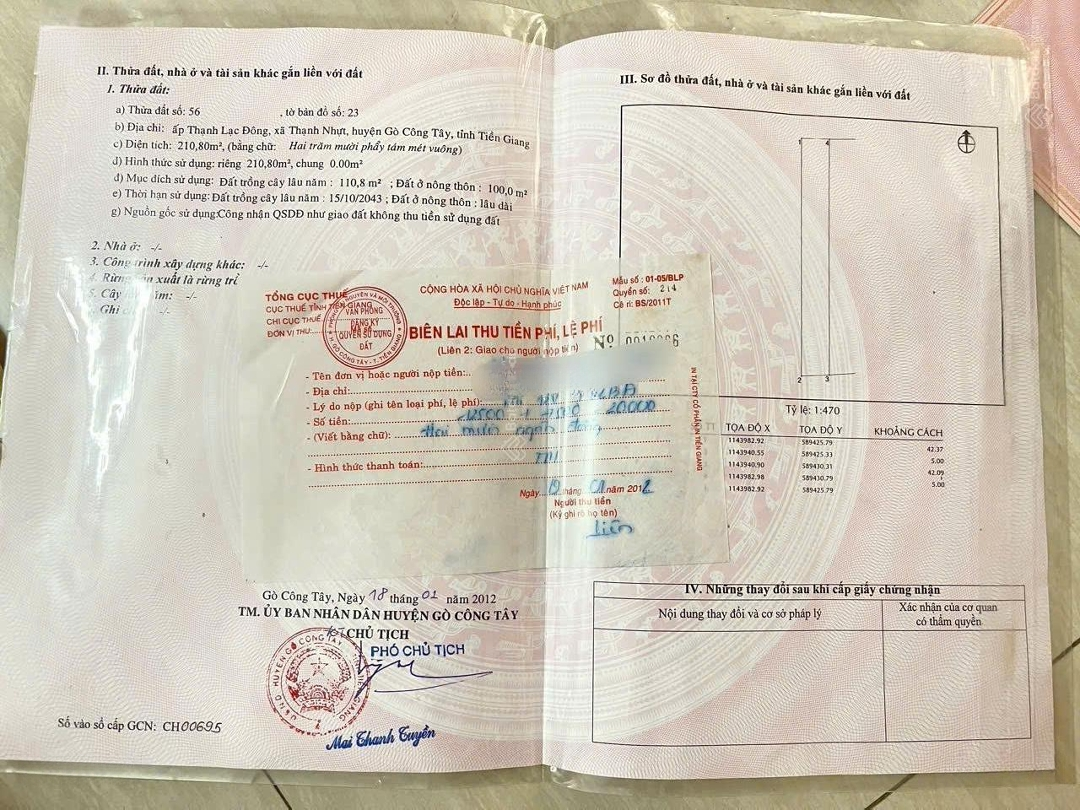 II. Thửa đất, nhà ở và tài sản khác gắn liền với đất
1. Thửa đất:
a) Thửa đất số: 56 , tờ bản đồ số: 23
b) Địa chỉ: ấp Thạnh Lạc Đông, xã Thạnh Nhựt, huyện Gò Công Tây, tỉnh Tiền Giang
c) Diện tích: 210,80m², (bằng chữ: Hai trăm mười phẩy tám mét vuông)
d) Hình thức sử dụng: riêng 210,80m², chung 0.00m²
đ) Mục đích sử dụng: Đất trồng cây lâu năm : 110,8 m² ; Đất ở nông thôn : 100,0 m²
e) Thời hạn sử dụng: Đất trồng cây lâu năm : 15/10/2043 ; Đất ở nông thôn : lâu dài
g) Nguồn gốc sử dụng: Công nhận QSDĐ như giao đất không thu tiền sử dụng đất
2. Nhà ở: -/-
3. Công trình xây dựng khác: -/-
4. Rừng sản xuất là rừng trồ
5. Cây năm: -/-
Ghi -/-
TỔNG CỤC THUẾ
CỤC THUẾ TỈNH TIỀN GIANG
CHI CỤC THUẾ
ĐƠN VỊ THU:
VĂN PHÒNG
ĐĂNG KÝ
QUYỀN SỬ DỤNG
ĐẤT
H. GÒ CÔNG TÂY - T. TIỀN GIANG
CỘNG HÒA XÃ HỘI CHỦ NGHĨA VIỆT NAM
Độc lập - Tự do - Hạnh phúc
Mẫu số: 01-05/BLP
Quyển số: 214
Cê ri: BS/2011T
BIÊN LAI THU TIỀN PHÍ, LỆ PHÍ
(Liên 2: Giao cho người nộp tiền)
Nº
- Tên đơn vị hoặc người nộp tiền:
- Địa chỉ:
- Lý do nộp (ghi tên loại phí, lệ phí):
- Số tiền: 20000
- (Viết bằng chữ): Hai mươi ngàn đồng
- Hình thức thanh toán: TM
Ngày tháng 01 năm 2012
Người thu tiền
(Ký ghi rõ họ tên)
IN TẠI CTY CỔ PHẦN IN TIỀN GIANG
Gò Công Tây, Ngày 18 tháng 01 năm 2012
TM. ỦY BAN NHÂN DÂN HUYỆN GÒ CÔNG TÂY
KT CHỦ TỊCH
PHÓ CHỦ TỊCH
U.B.N.D HUYỆN GÒ CÔNG TÂY
Mai Thanh Tuyền
Số vào sổ cấp GCN: CH00695
III. Sơ đồ thửa đất, nhà ở và tài sản khác gắn liền với đất
1 4
2 3
Tỷ lệ: 1:470
TỌA ĐỘ X TỌA ĐỘ Y KHOẢNG CÁCH
1143982.92 589425.79
42.37
1143940.55 589425.33
5.00
1143940.90 589430.31
42.09
1143982.98 589430.79
5.00
1143982.92 589425.79
IV. Những thay đổi sau khi cấp giấy chứng nhận
Nội dung thay đổi và cơ sở pháp lý
Xác nhận của cơ quan
có thẩm quyền